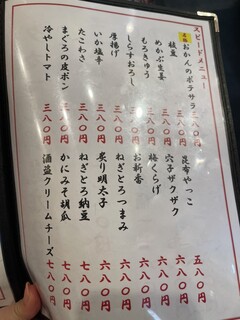 スピードメニュー
名物 おかんのポテサラ 三八〇円
枝豆 三八〇円
めかぶ生姜 三八〇円
もろきゅう 三八〇円
しらすおろし 三八〇円
唐揚げ 三八〇円
いか塩辛 三八〇円
たこわさ 三八〇円
まぐろの皮ポン 三八〇円
冷やしトマト 三八〇円
昆布やっこ 五八〇円
穴子ザクザク 六八〇円
梅くらげ 六八〇円
お新香 六八〇円
ねぎとろつまみ 六八〇円
炙り明太子 六八〇円
ねぎとろ納豆 七八〇円
かにみそ胡瓜 七八〇円
酒盗クリームチーズ 七八〇円